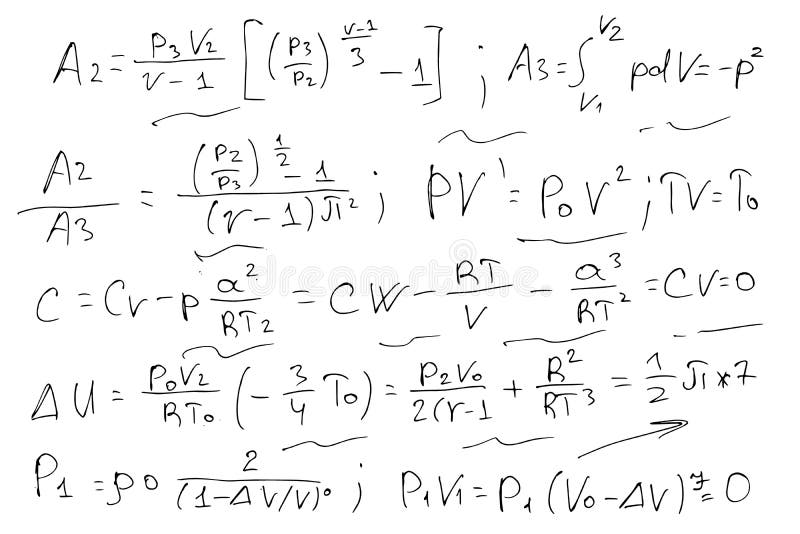 A2 = P3 V2 / r − 1 [(P3 / P2)^(r−1 / 3) − 1] ; A3 = ∫_V1^V2 pdV = −p²
A2 / A3 = (P2 / P3)^(1/2) − 1 / (r − 1)π² ; PV' = P0 V² ; TV = T0
C = Cv − p a² / RT2 = CW − RT / V a³ / RT² = CV = 0
ΔU = P0V2 / RT0 (− 3/4 T0) = P2V0 / 2(r−1 + R² / RT³ = 1/2 π * 7
P1 = p0 2 / (1−ΔV/V)⁰ ; P1V1 = P1 (V0 − ΔV)^γ = 0
dreamstime.com